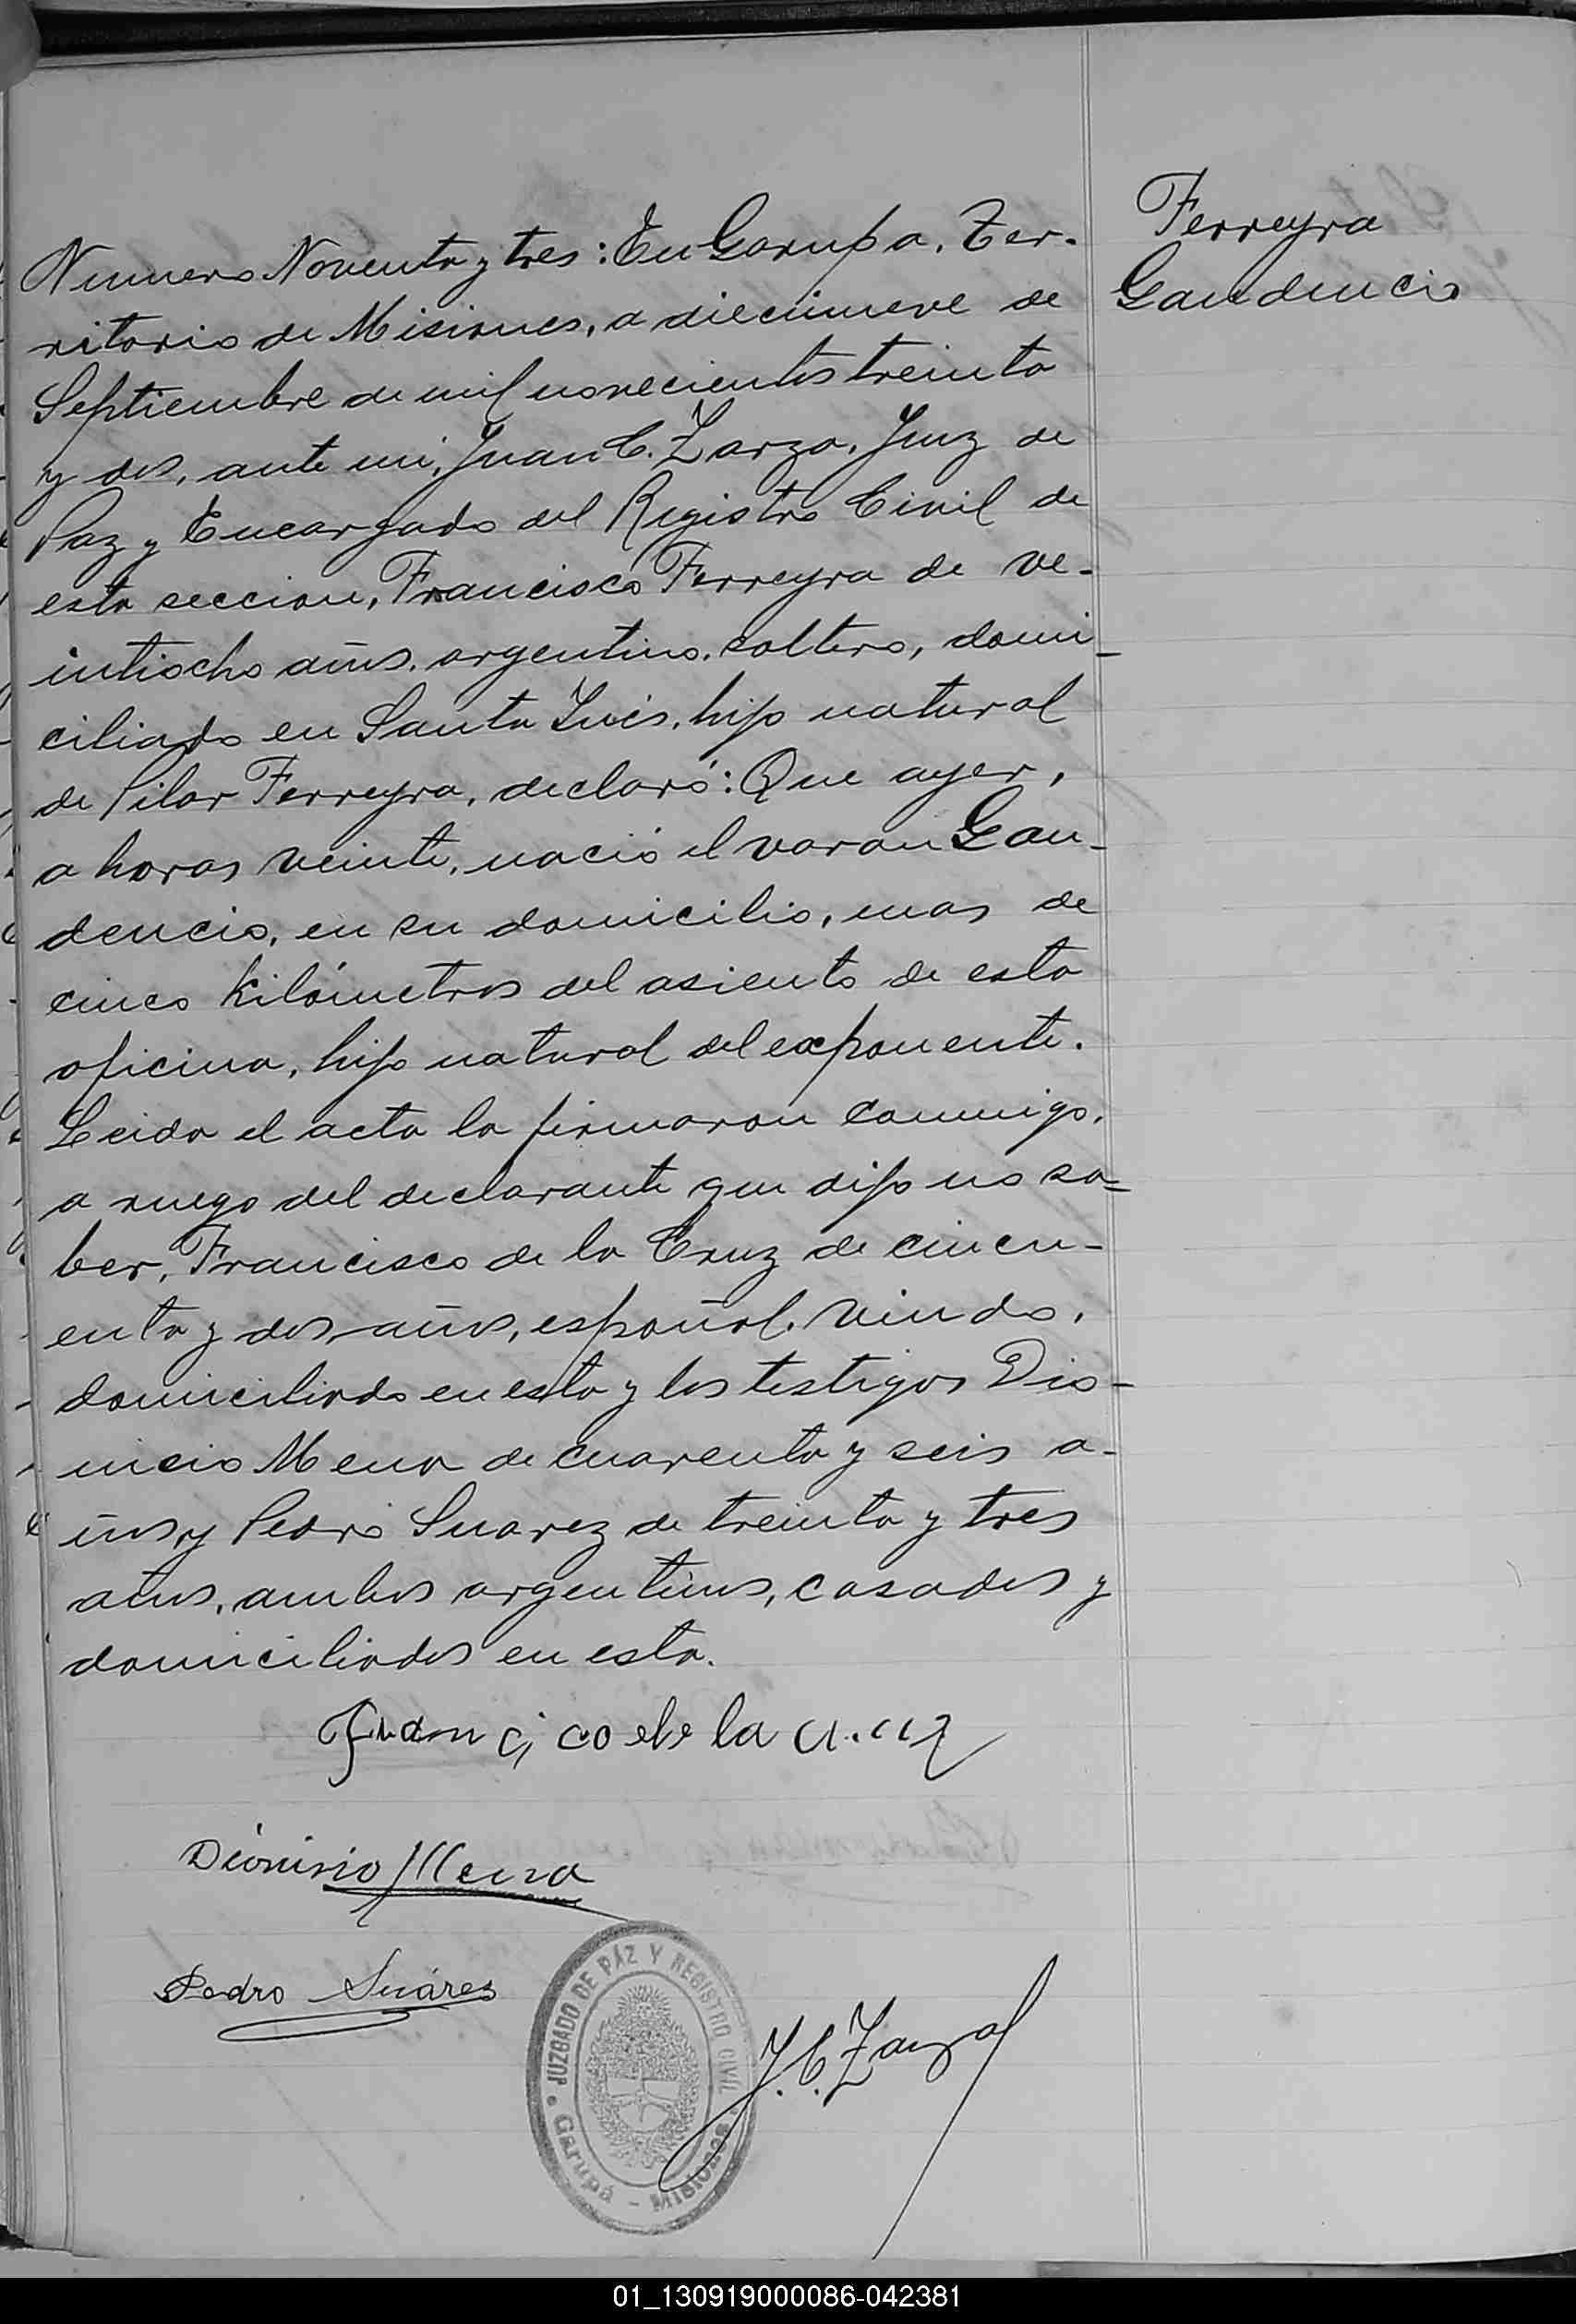 Ferreyra
Gaudencio
Numero Noventa y tres: En Garupa, Ter-
ritorio de Misiones, a diecinueve de
Septiembre de mil novecientos treinta
y dos, ante mi, Juan C. Zarza, Juez de
Paz y Encargado del Registro Civil de
esta seccion, Francisco Ferreyra de ve-
intiocho años, argentino, soltero, domi-
ciliado en Santa Inés, hijo natural
de Pilar Ferreyra, declaró: Que ayer,
a horas veinte, nació el varon Gau-
dencio, en su domicilio, mas de
cinco kilómetros del asiento de esta
oficina, hijo natural del exponente.
Leida el acta la firmaron conmigo,
a ruego del declarante que dijo no sa-
ber, Francisco de la Cruz de cincu-
enta y dos años, español, viudo,
domiciliado en esta y los testigos Dio-
nicio Mena de cuarenta y seis a-
ños y Pedro Suarez de treinta y tres
años, ambos argentinos, casados y
domiciliados en esta.
Francico de la cruz
Dionisio Mena
Pedro Suárez
J. C. Zarza
JUZGADO DE PAZ Y REGISTRO CIVIL
Garupá - Misiones
01_130919000086-042381